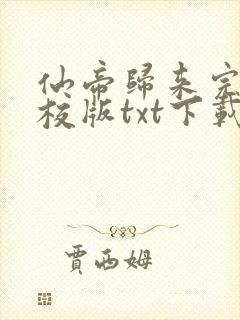 仙帝歸来完
校版txt下載
賈西姆